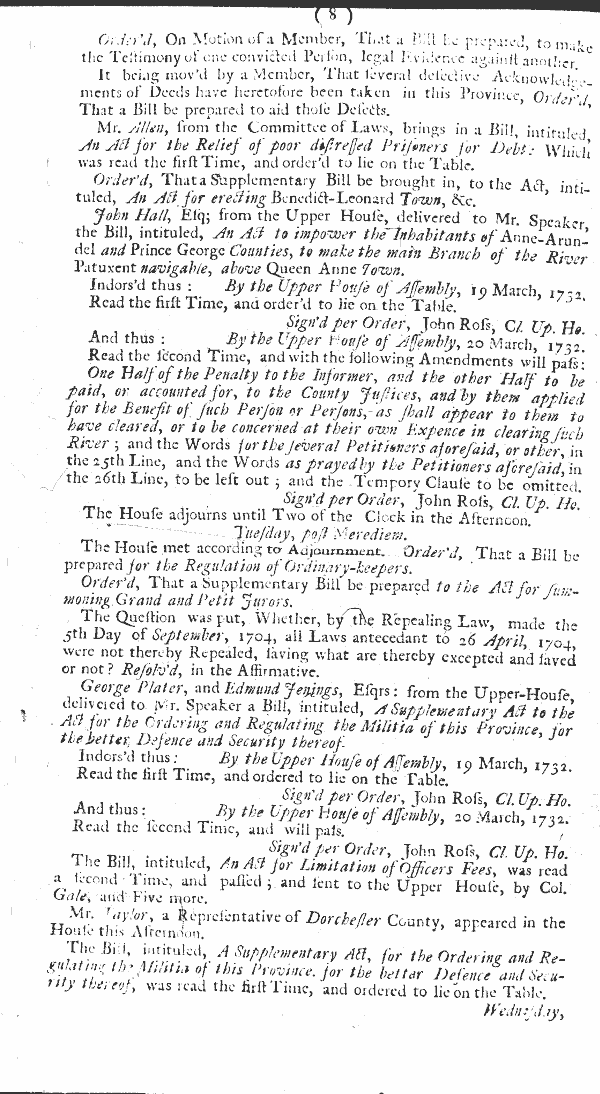 ( 8 )
Order'd, On Motion of a Member, That a Bill be prepared, to make
the Teſtimony of one convicted Perſon, legal Evidence againſt another.
It being mov'd by a Member, That ſeveral defective Acknowledge-
ments of Deeds have heretofore been taken in this Province, Order'd,
That a Bill be prepared to aid thoſe Defects.
Mr. Allen, from the Committee of Laws, brings in a Bill, intituled,
An Act for the Relief of poor diſtreſſed Priſoners for Debt: Which
was read the firſt Time, and order'd to lie on the Table.
Order'd, That a Supplementary Bill be brought in, to the Act, inti-
tuled, An Act for erecting Benedict-Leonard Town, &c.
John Hall, Eſq; from the Upper Houſe, delivered to Mr. Speaker,
the Bill, intituled, An Act to impower the Inhabitants of Anne-Arun-
del and Prince George Counties, to make the main Branch of the River
Patuxent navigable, above Queen Anne Town.
Indors'd thus : By the Upper Houſe of Aſſembly, 19 March, 1732.
Read the firſt Time, and order'd to lie on the Table.
Sign'd per Order, John Roſs, Cl. Up. Ho.
And thus : By the Upper Houſe of Aſſembly, 20 March, 1732.
Read the ſecond Time, and with the following Amendments will paſs:
One Half of the Penalty to the Informer, and the other Half to be
paid, or accounted for, to the County Juſtices, and by them applied
for the Benefit of ſuch Perſon or Perſons, as ſhall appear to them to
have cleared, or to be concerned at their own Expence in clearing ſuch
River ; and the Words for the ſeveral Petitioners aforeſaid, or other, in
the 25th Line, and the Words as prayed by the Petitioners aforeſaid, in
the 26th Line, to be left out ; and the Tempory Clauſe to be omitted.
Sign'd per Order, John Roſs, Cl. Up. Ho.
The Houſe adjourns until Two of the Clock in the Afternoon.
Tueſday, poſt Meridiem.
The Houſe met according to Adjournment. Order'd, That a Bill be
prepared for the Regulation of Ordinary-keepers.
Order'd, That a Supplementary Bill be prepared to the Act for ſum-
moning Grand and Petit Jurors.
The Queſtion was put, Whether, by the Repealing Law, made the
5th Day of September, 1704, all Laws antecedant to 26 April, 1704,
were not thereby Repealed, ſaving what are thereby excepted and ſaved
or not ? Reſolv'd, in the Affirmative.
George Plater, and Edmund Jenings, Eſqrs: from the Upper-Houſe,
delivered to Mr. Speaker a Bill, intituled, A Supplementary Act to the
Act for the Ordering and Regulating the Militia of this Province, for
the better Defence and Security thereof.
Indors'd thus : By the Upper Houſe of Aſſembly, 19 March, 1732.
Read the firſt Time, and ordered to lie on the Table.
Sign'd per Order, John Roſs, Cl. Up. Ho.
And thus : By the Upper Houſe of Aſſembly, 20 March, 1732.
Read the ſecond Time, and will paſs.
Sign'd per Order, John Roſs, Cl. Up. Ho.
The Bill, intituled, An Act for Limitation of Officers Fees, was read
a ſecond Time, and paſſed ; and ſent to the Upper Houſe, by Col.
Gale, and Five more.
Mr. Taylor, a Repreſentative of Dorcheſter County, appeared in the
Houſe this Afternoon.
The Bill, intituled, A Supplementary Act, for the Ordering and Re-
gulating the Militia of this Province, for the better Defence and Secu-
rity thereof, was read the firſt Time, and ordered to lie on the Table.
Wedneſday,